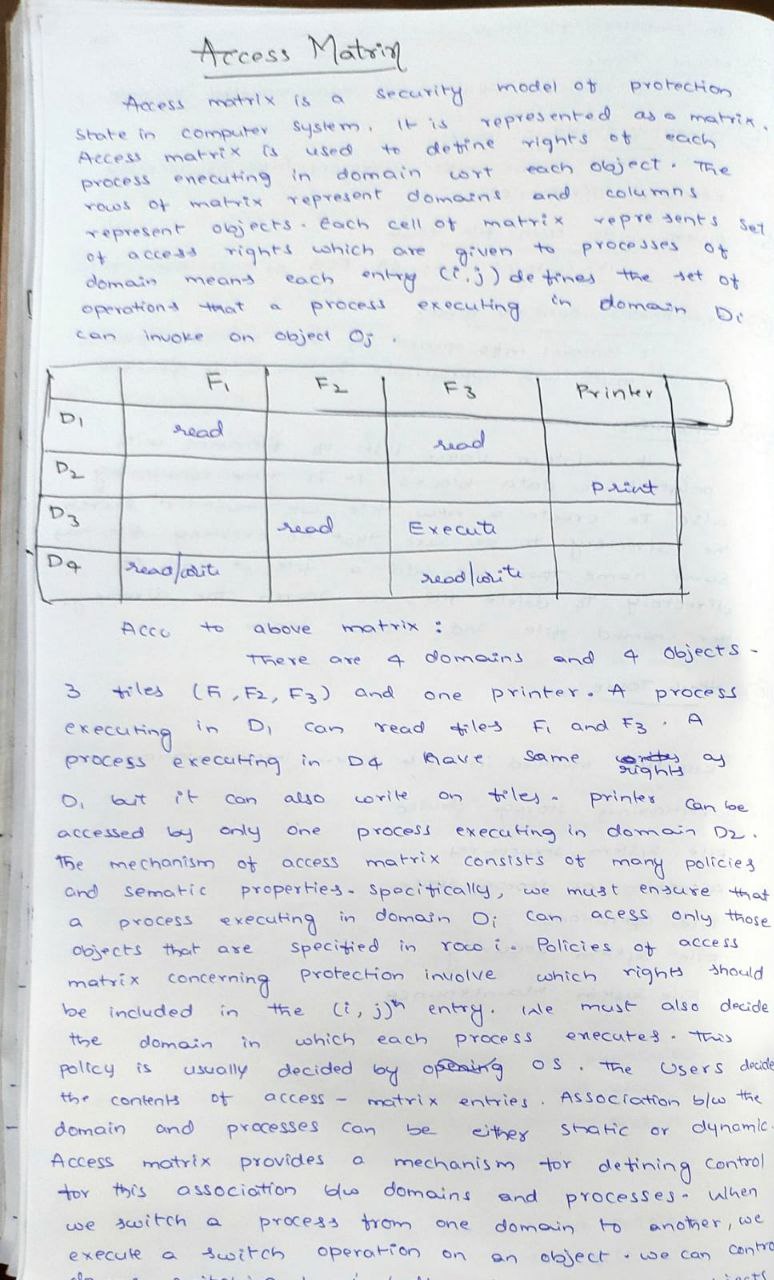 Access Matrix
Access matrix is a security model of protection
state in computer system. It is represented as a matrix.
Access matrix is used to define rights of each
process executing in domain wrt each object. The
rows of matrix represent domains and columns
represent objects. Each cell of matrix represents set
of access rights which are given to processes of
domain means each entry (i,j) defines the set of
operations that a process executing in domain Di
can invoke on object Oj.
F1 F2 F3 Printer
D1 read read
D2 print
D3 read Execute
D4 read/write read/write
Acco to above matrix :
There are 4 domains and 4 Objects -
3 files (F1, F2, F3) and one printer. A process
executing in D1 can read files F1 and F3. A
process executing in D4 have same rights as
D1 but it can also write on files. printer can be
accessed by only one process executing in domain D2.
The mechanism of access matrix consists of many policies
and sematic properties. Specifically, we must ensure that
a process executing in domain Di can acess only those
objects that are specified in row i. Policies of access
matrix concerning protection involve which rights should
be included in the (i, j)th entry. We must also decide
the domain in which each process executes. This
policy is usually decided by OS. The Users decide
the contents of access-matrix entries. Association b/w the
domain and processes can be either static or dynamic.
Access matrix provides a mechanism for defining control
for this association b/w domains and processes. When
we switch a process from one domain to another, we
execute a switch operation on an object. we can contro